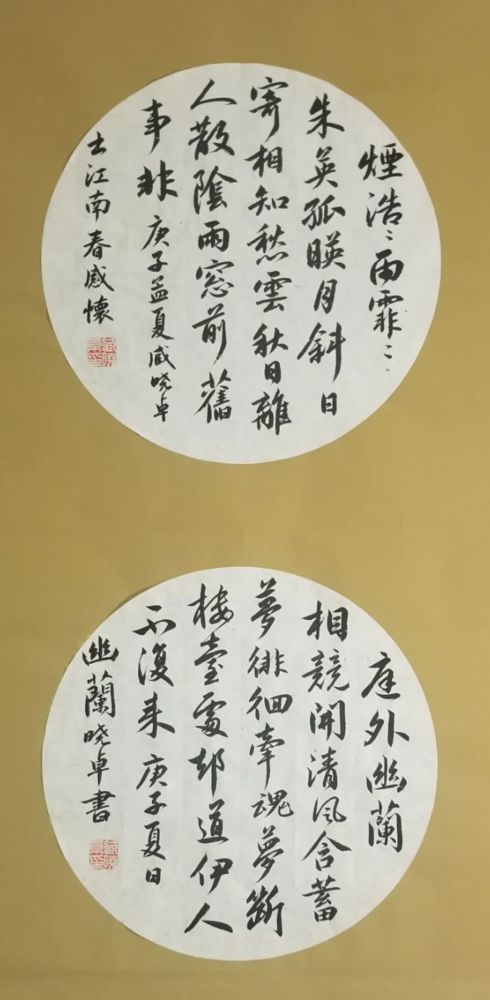 煙浩〻雨霏〻
朱英孤暎月斜日
寄相知愁雲秋日離
人散陰雨窓前舊
事非 庚子孟夏臧晓卓
江南春感懷
庭外幽蘭
相競開清风含蓄
夢徘徊牽魂夢斷
楼臺處却道伊人
不復来 庚子夏日
幽蘭晓卓書